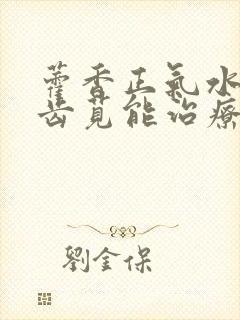 藿香正氣水
齿莧能治療
劉金保